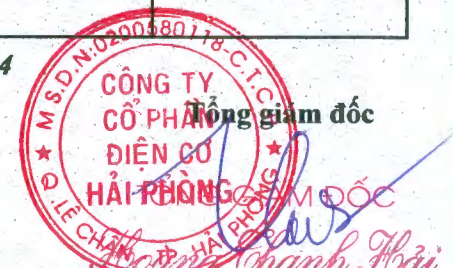 4
M.S.D.N:0200580118-C.T.C.P
CÔNG TY
CỔ PHẦN
ĐIỆN CƠ
HẢI PHÒNG
Q. LÊ CHÂN - TP. HẢI PHÒNG
Tổng giám đốc
TỔNG GIÁM ĐỐC
Hoàng Thành Hải